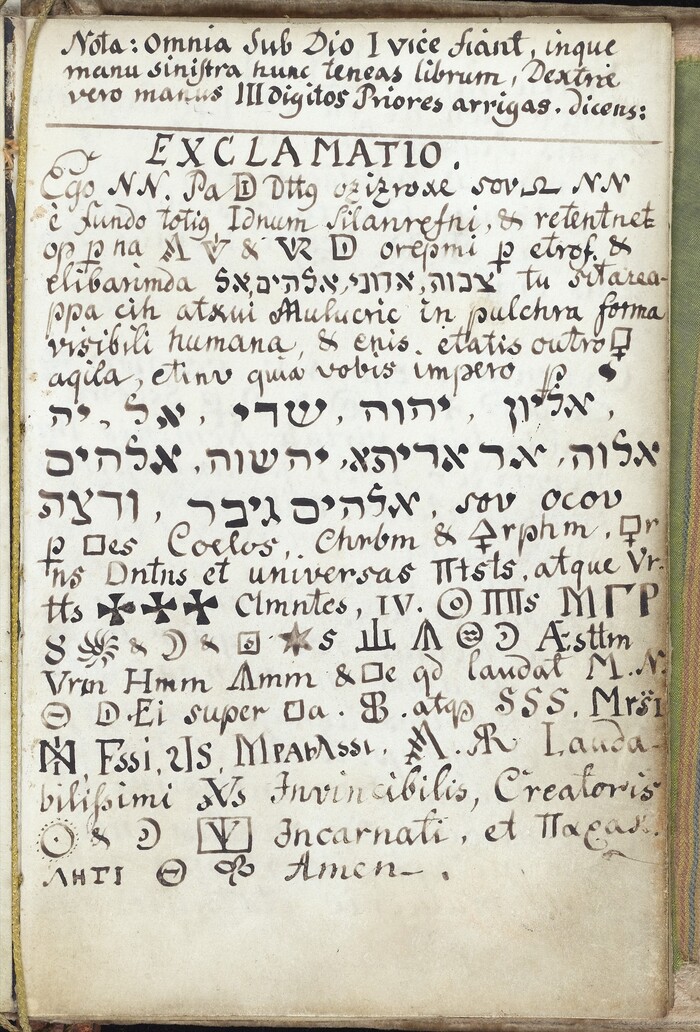 Nota: Omnia Sub Dio I vice fiant, inque
manu sinistra hunc teneas librum, Dextrie
vero manus III digitos Priores arrigas. dicens:
EXCLAMATIO.
Ego NN. Pa D Dttg ozizroxe sov Ω NN
è fundo totiq Idnum Silanrefni, & retentnet
op p na & VR D orepmi p etrof. &
elibarimda צבוה, אדוני, אלהים, אל tu sitarea-
ppa cih atxui Mulucric in pulchra forma
visibili humana, & enis. etatis outro
aqila, etinv quia vobis impero p
אליון, יהוה, שדי, אל, יה,
אלוה, אד אריתא, יהשוה, אלהים
אלהים גיבר, sov ocov ודצת,
p □es Coelos, Chrbm & rphm, r
ns Dntns et universas Πtsts, atque Vr-
tts ✠✠✠ Clmntes, IV. ☉ s ΜΓΡ
8 & ☽ & s ☽ Æsttm
Vrm Hmm Amm & □e qd laudat M. N.
Θ D. Ei super □a. atqs SSS, Mrsi
Fssi, Mpatassi, Lauda-
bilissimi Invincibilis, Creatoris
☉ & ☽ Incarnati, et Παρακ.
ΛΗΤΙ Θ Amen.